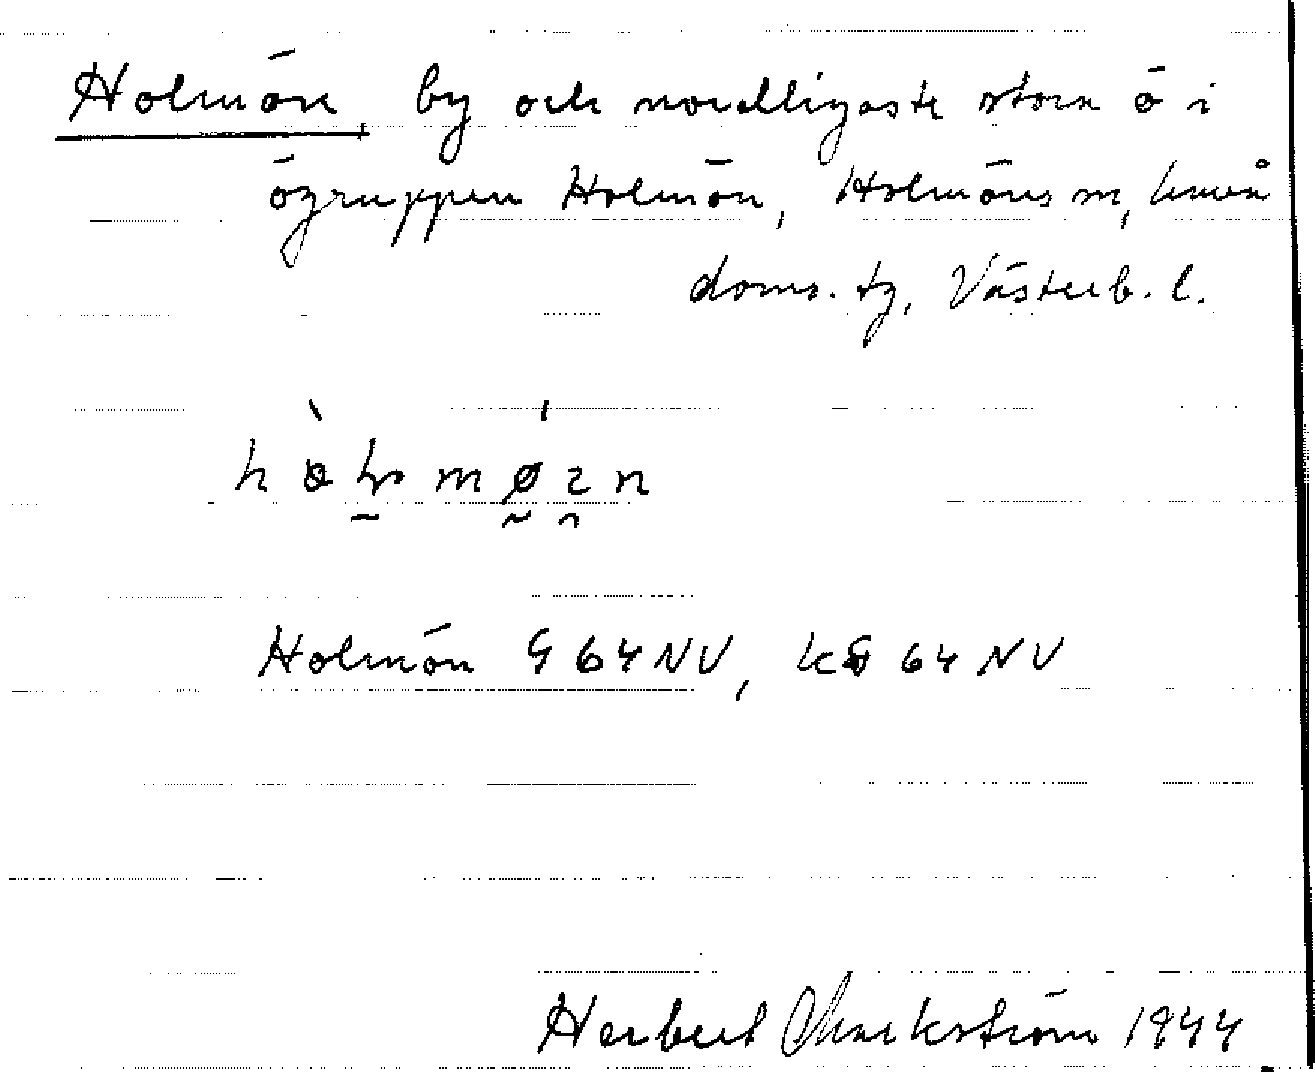 Holmön, by och nordligaste stora ö i
ögruppen Holmön, Holmöns sn, Umeå
doms. tg, Västerb. l.
Holmön G 64 NV, kG 64 NV
Herbert Markström 1944